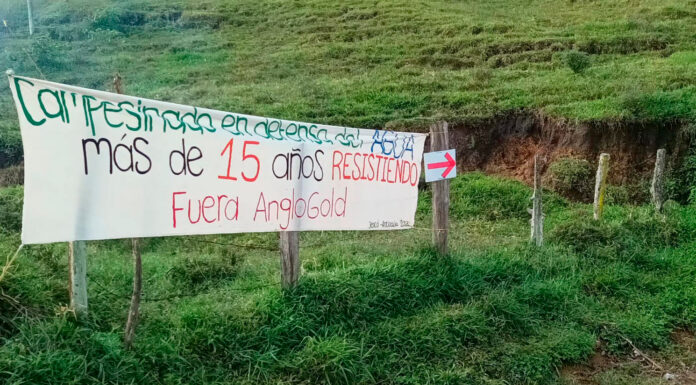 Campesinada en defensa del AGUA
más de 15 años RESISTIENDO
Fuera AngloGold